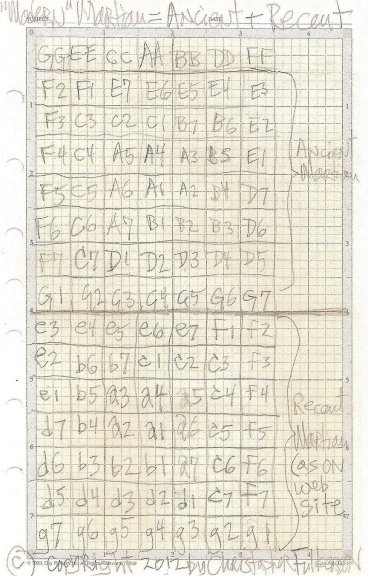 "Modern" Martian = Ancient + Recent
GG EE CC AA BB DD FF
F2 F1 E7 E6 E5 E4 E3
F3 C3 C2 C1 B7 B6 E2
F4 C4 A5 A4 A3 B5 E1
Ancient
Martian
F5 C5 A6 A1 A2 D4 D7
F6 C6 A7 B1 B2 B3 D6
F7 C7 D1 D2 D3 D4 D5
G1 G2 G3 G4 G5 G6 G7
e3 e4 e5 e6 e7 f1 f2
e2 b6 b7 c1 c2 c3 f3
e1 b5 a3 a4 a5 c4 f4
d7 b4 a2 a1 a6 c5 f5
d6 b3 b2 b1 a7 c6 f6
d5 d4 d3 d2 d1 c7 f7
g7 g6 g5 g4 g3 g2 g1
Recent
Martian
(as on
web
site.
© copyright 2012 by Christopher Fulkerson